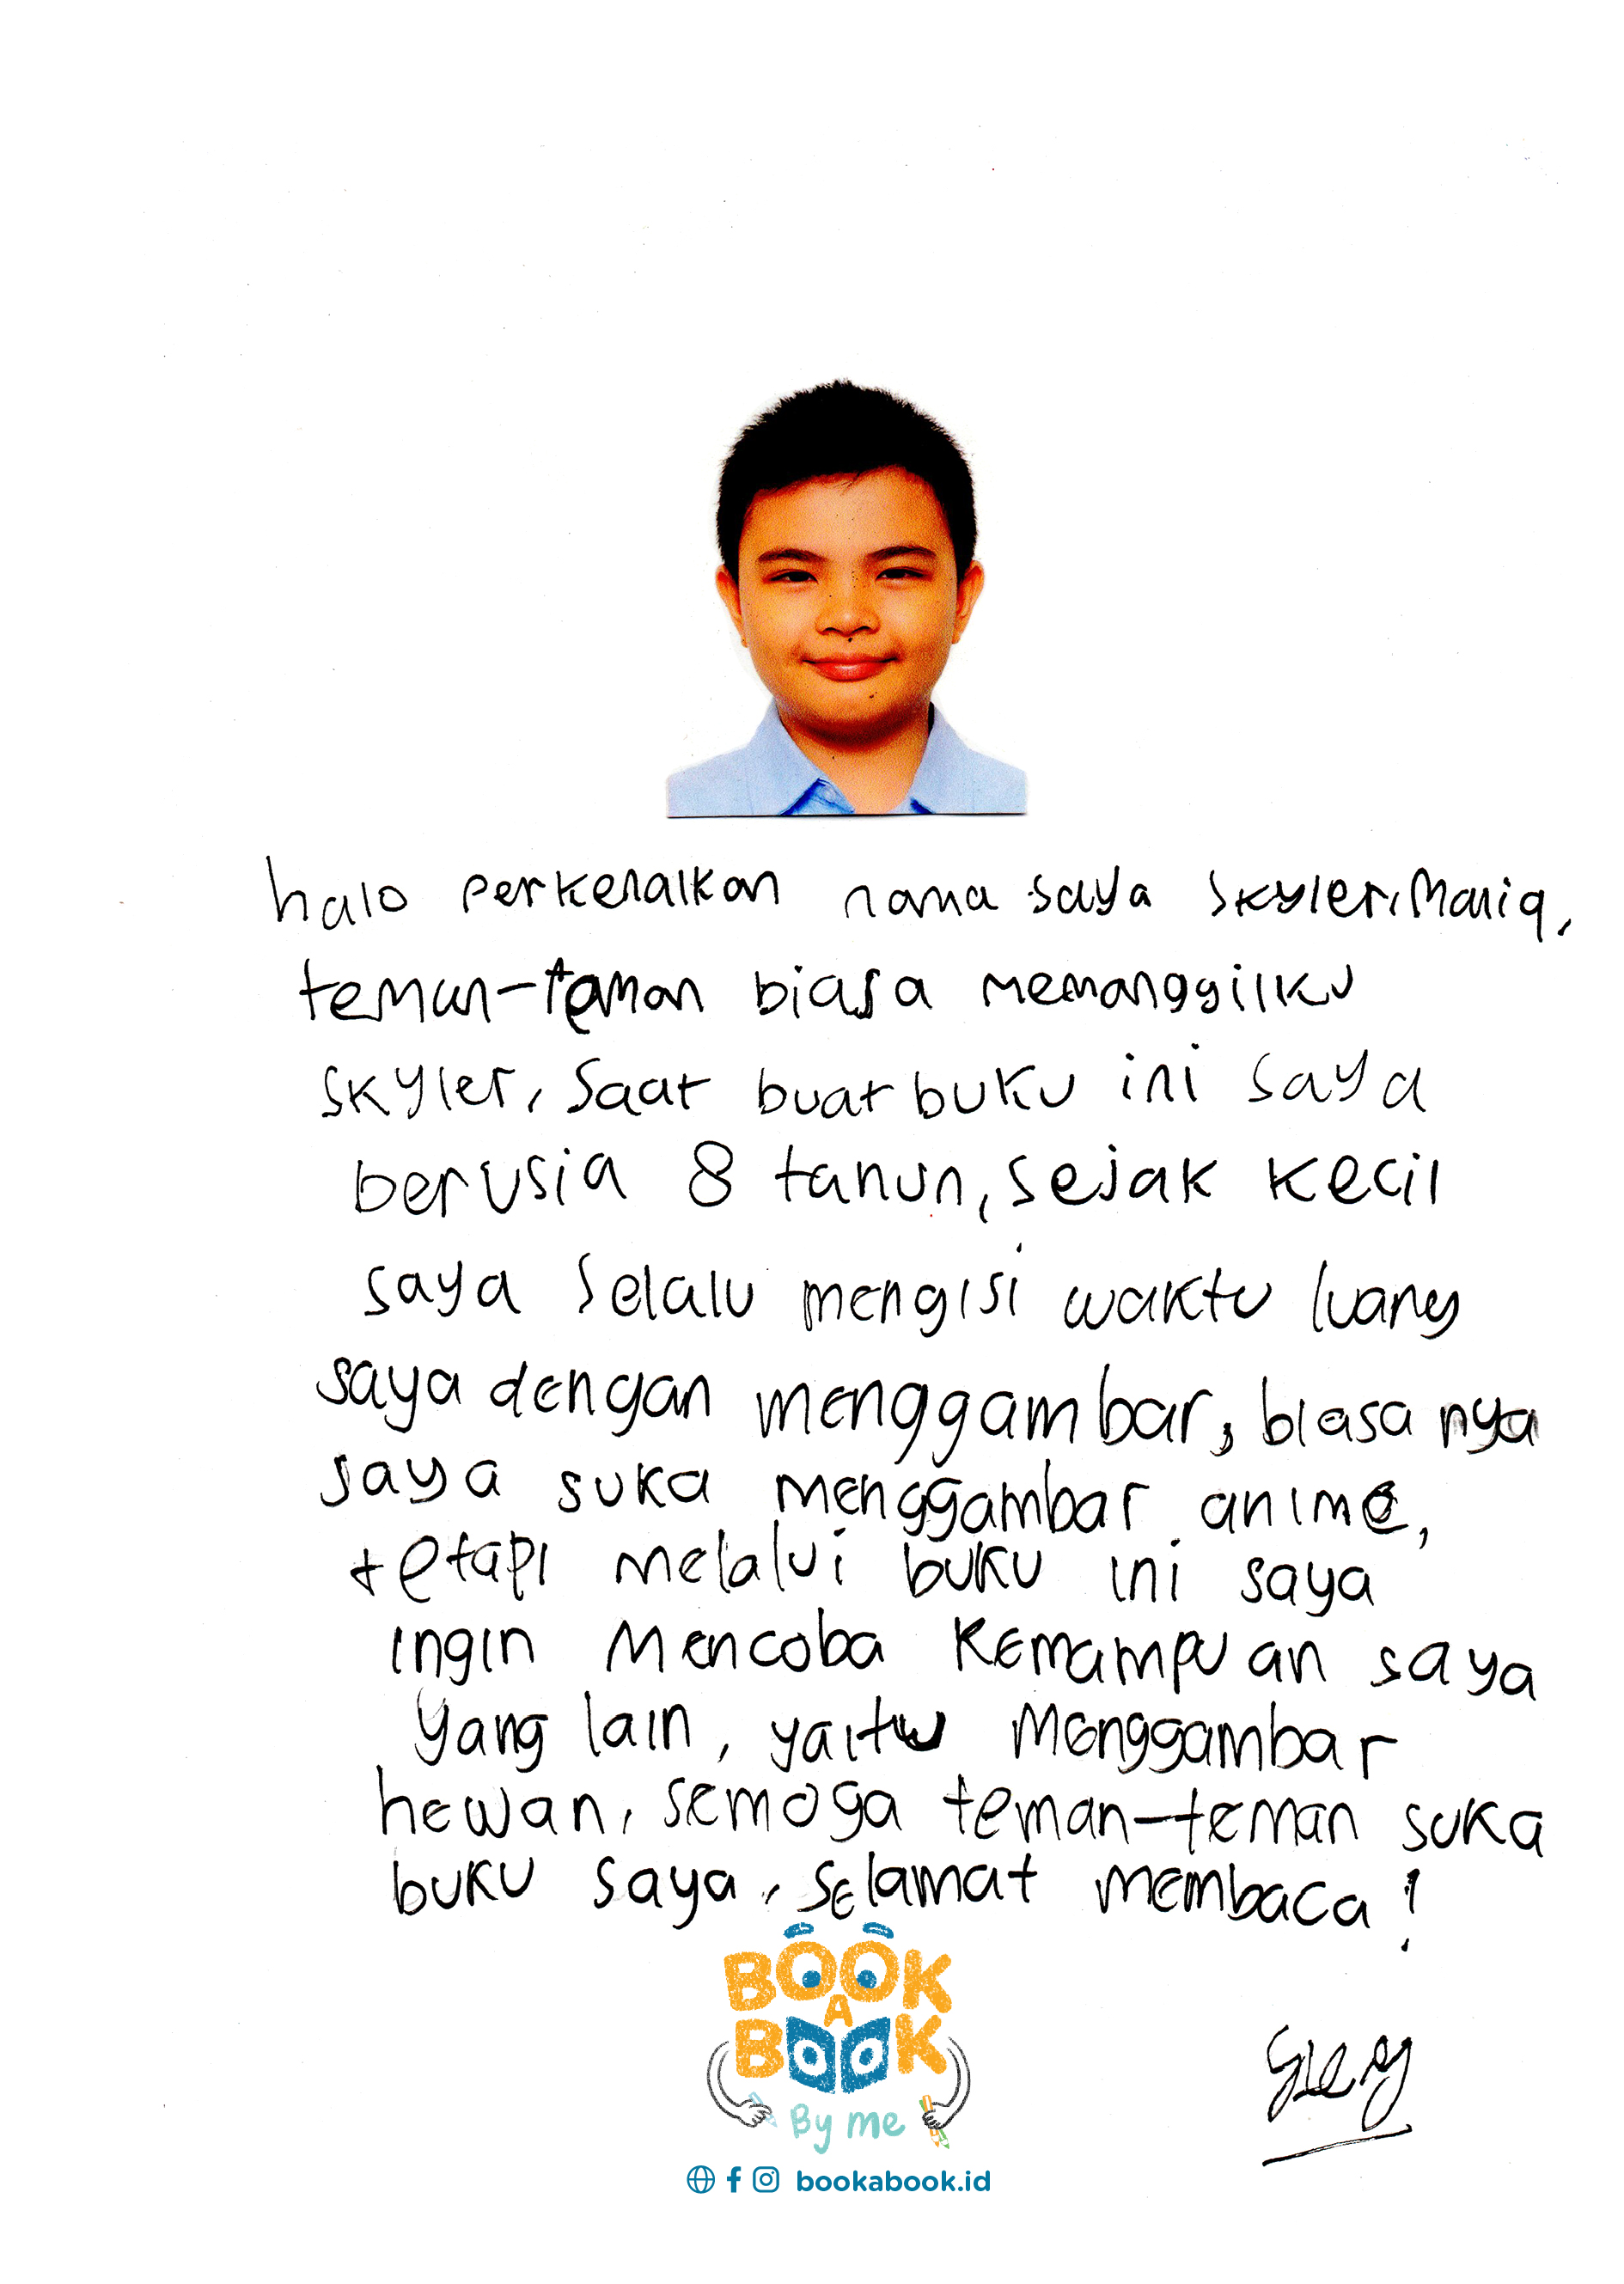 halo perkenalkan nama saya skyler, Mariq,
teman-teman biasa memanggilku
skyler, saat buat buku ini saya
berusia 8 tahun, sejak kecil
saya selalu mengisi waktu luang
saya dengan menggambar, biasa nya
saya suka menggambar anime,
tetapi melalui buku ini saya
ingin mencoba kemampuan saya
yang lain, yaitu menggambar
hewan, semoga teman-teman suka
buku saya, selamat membaca!
BOOK
A
BOOK
By me
bookabook.id